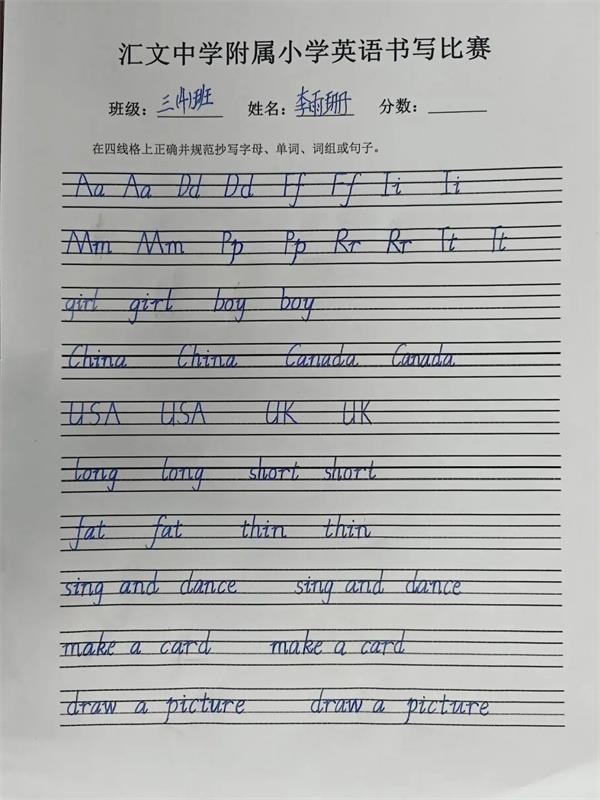 汇文中学附属小学英语书写比赛
班级：三(4)班 姓名：李雨珊 分数：
在四线格上正确并规范抄写字母、单词、词组或句子。
Aa Aa Dd Dd Ff Ff Ii Ii
Mm Mm Pp Pp Rr Rr Tt Tt
girl girl boy boy
China China Canada Canada
USA USA UK UK
long long short short
fat fat thin thin
sing and dance sing and dance
make a card make a card
draw a picture draw a picture